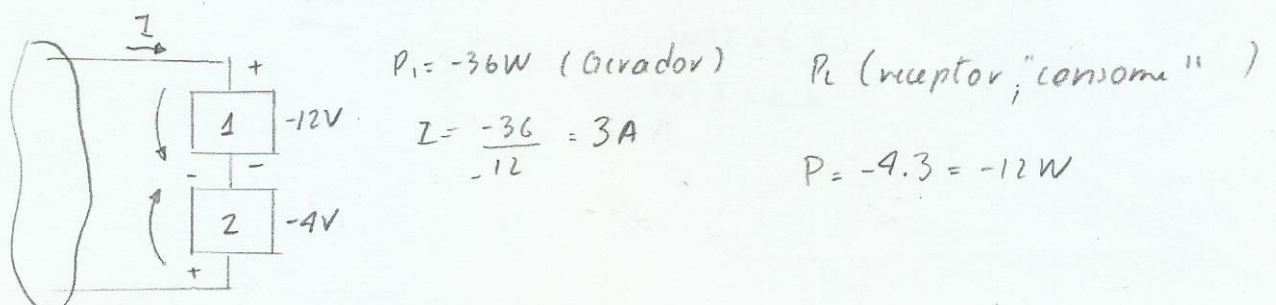 I
+
1
-12V
-
-
2
-4V
+
P₁ = -36W (Gerador)
I = -36 / -12 = 3A
P₂ (receptor, "consome")
P = -4.3 = -12W